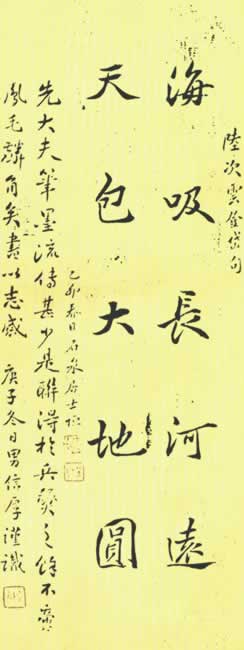 陸次雲登岱句
海吸長河遠
天包大地圓
乙卯春日石泉居士
先大夫筆墨流傳甚少是聯得於兵燹之餘不啻
鳳毛麟角矣書以志感 庚子冬日男信厚謹識